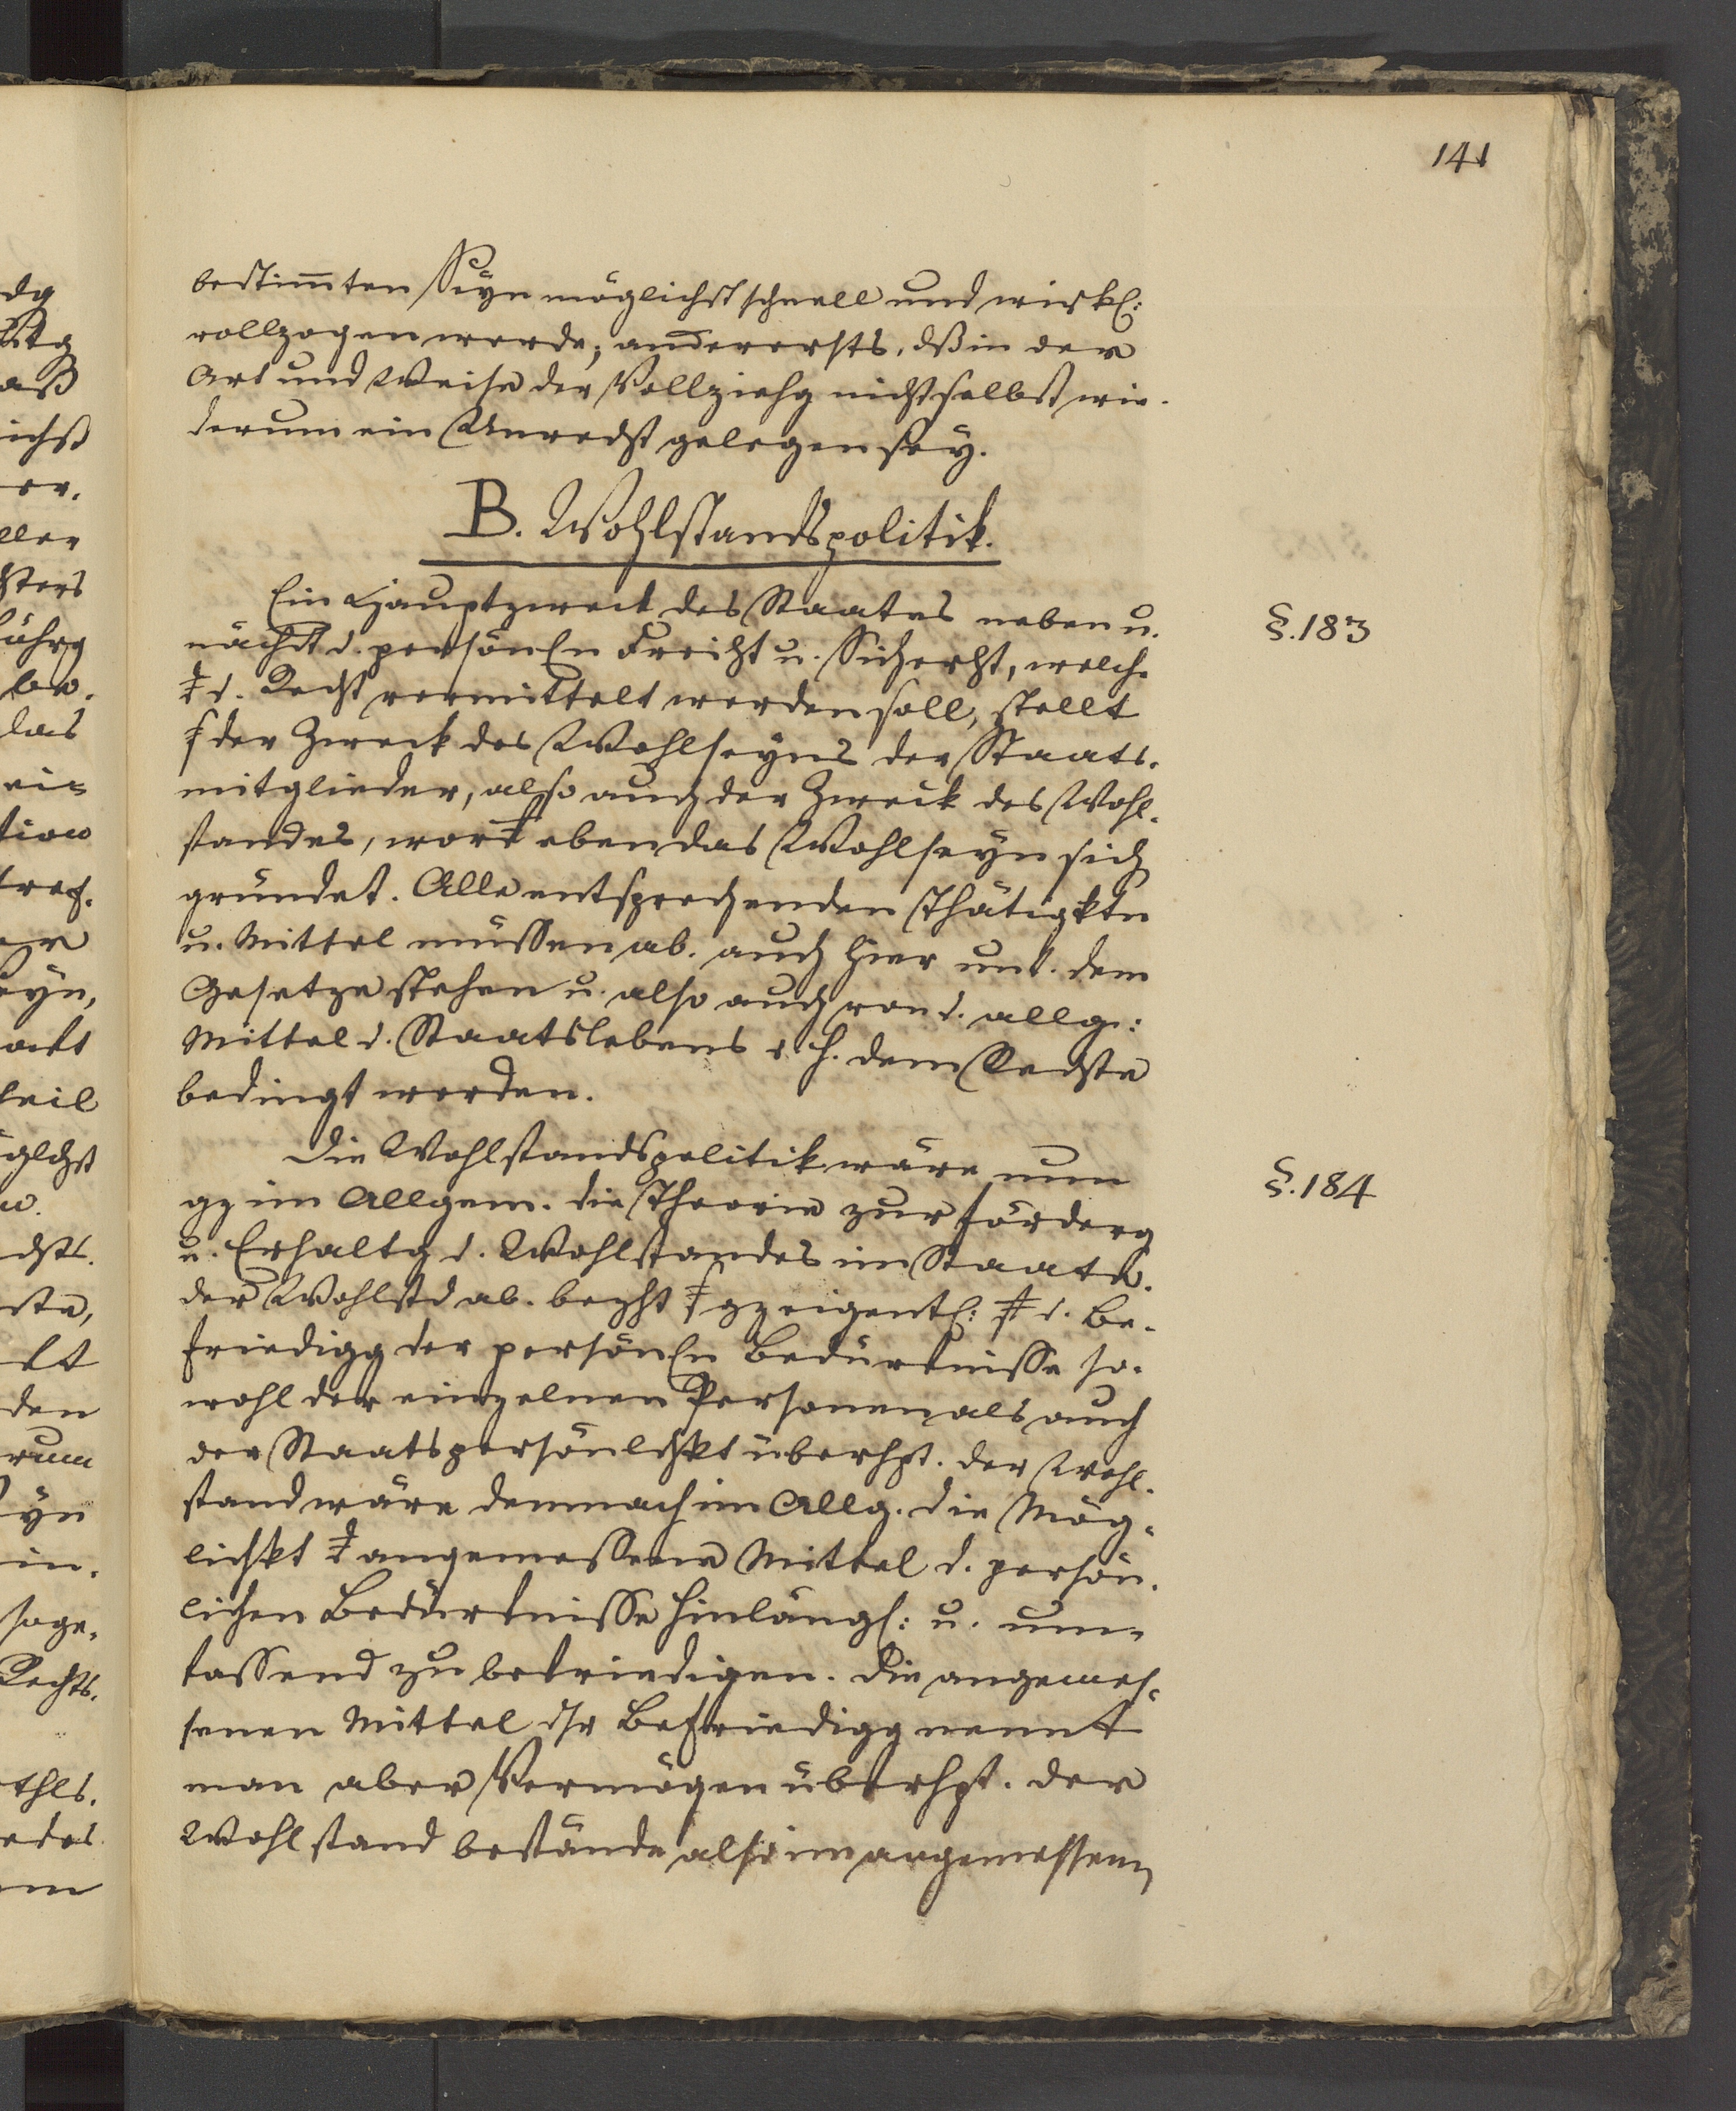 141
bestim̅ten Seyn möglichst schnell und wirkl:
vollzogen werde; andererseits, dß in der
Art und Weise der Vollziehg nicht selbst wie-
derum ein Unrecht gelegen sey.
B. Wohlstandspolitik.
Ein Hauptzweck des Staates neben u.
§.183
nächst d. persönln Freiht u. Sicherht, welche
d. Recht vermittelt werden soll, stellt
der Zweck des Wohlseyns der Staats-
mitglieder, also auch der Zweck des Wohl-
standes, wor eben das Wohlseyn sich
gründet. Alle entsprechenden Thätigktn
u. Mittel müssen ab. auch hier unt. dem
Gesetze stehen u. also auch von d. allg:
Mittel d. Staatslebens d. h. dem Rechte
bedingt werden.
Die Wohlstandspolitik wäre nun
§.184
gz im Allgem. die Theorie zur Förderg
u. Erhaltg d. Wohlstandes im Staate.
der Wohlstd ab. bezht gz eigentl: d. Be-
friedigg der persönln Bedürfnisse so-
wohl der einzelnen Personen als auch
der Staatspersönlchkt überhpt. der Wohl-
stand wäre demnach im Allg. die Mög-
lichkt angemessene Mittel d. persön-
lichen Bedürfnisse hinlängl: u. um-
fassend zu befriedigen. Die angemes-
senen Mittel dsr Befriedigg nennt
man aber Vermögen überhpt. der
Wohlstand bestände also im angemessenen